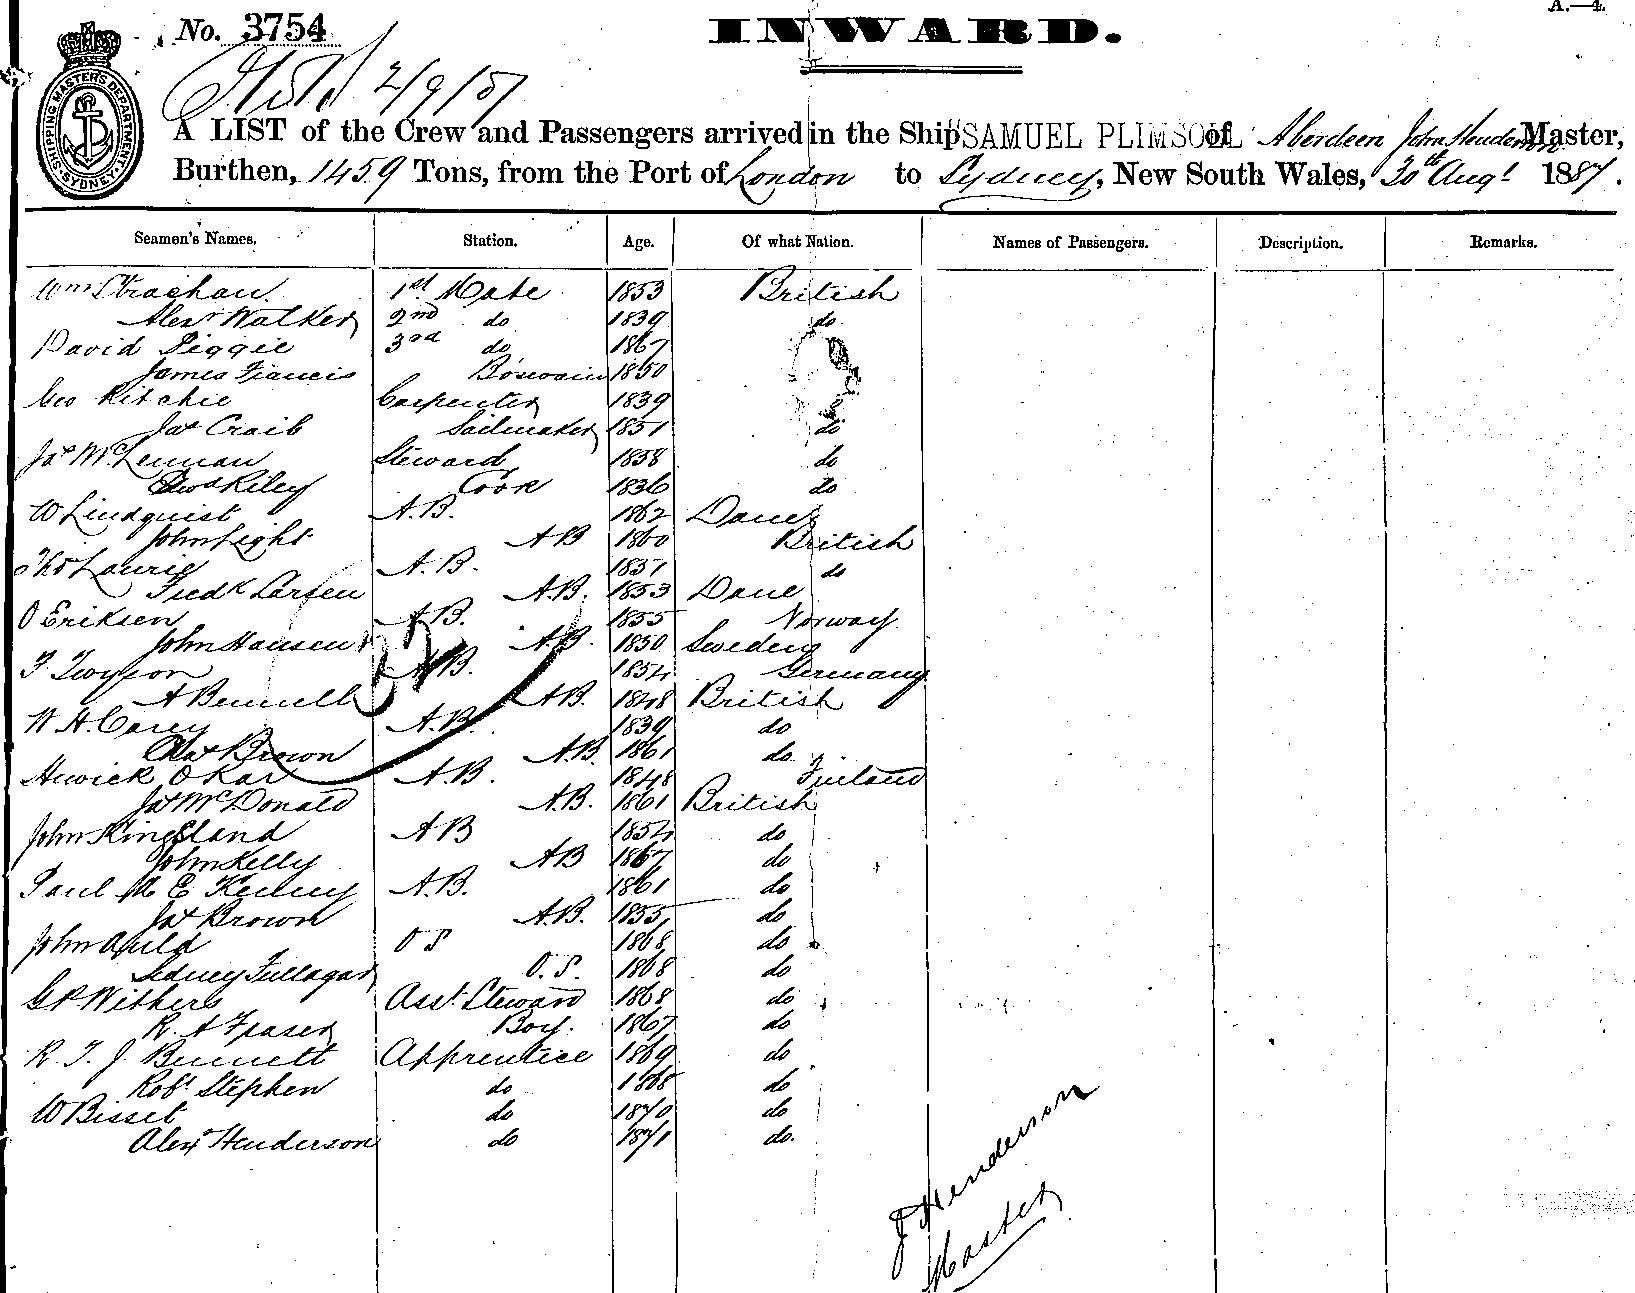 A.—4.
No. 3754
INWARD.
SHIPPING MASTERS DEPARTMENT SYDNEY
2/9/87
A LIST of the Crew and Passengers arrived in the Ship "SAMUEL PLIMSOLL of Aberdeen John Henderson Master,
Burthen, 1459 Tons, from the Port of London to Sydney, New South Wales, 30th Augt 1887.
Seamen's Names. Station. Age. Of what Nation. Names of Passengers. Description. Remarks.
Wm Strachan. 1st Mate 1853 British
Alexr Walker 2nd do 1839 do
David Piggie 3rd do 1867
James Francis Boswain 1850
Geo Ritchie Carpenter 1839
Jas Craib Sailmaker 1851 do
Jas McLennan Steward 1858 do
Riley Cook 1836 do
W Lindquist A.B. 1862 Dane
John Light AB 1860 British
Thos Laurie A.B. 1837 do
Fredk Larsen A.B. 1853 Dane
O Eriksen A.B. 1855 Norway
John Hansen A.B. 1850 Sweden
F A.B. 1854 Germany
A Bennell A.B. 1848 British
W H. Carey A.B. 1839 do
Chas Brown A.B. 1861 do
Okar A.B. 1848 Finland
Jas McDonald A.B. 1861 British
John Kingsland AB 1854 do
John Kelly AB 1867 do
Paul M E Kenny A.B. 1861 do
Jas Brown A.B. 1855 do
John Auld O S 1868 do
Sidney Fullagar O.S. 1868 do
G P Withers Asst Steward 1868 do
R. A Fraser Boy. 1867 do
R. T. J Bennett Apprentice 1869 do
Robt Stephen do 1868 do
W Bisset do 1870 do
Alexr Henderson do 1871 do.
J Henderson
Master